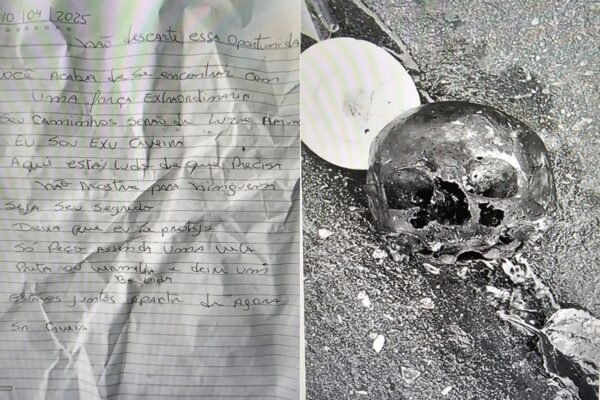 10 | 04 | 2025
não descarte essa oportunida
VOCÊ ACABA de se encontrar com
UMA força EXTRAORDINARIA
Seu Caminhos serão de Luz e
EU SOU EXU CAVEIRA
Aqui está tudo de que Precisa
não mostra para ninguem
Seja seu segredo
Deixa que eu te proteja
Só Peço Acenda UMA vela
Preta ou vermelha e deixe um
Bebida
Estamos juntos Aparti de Agora
Sr. Caveira